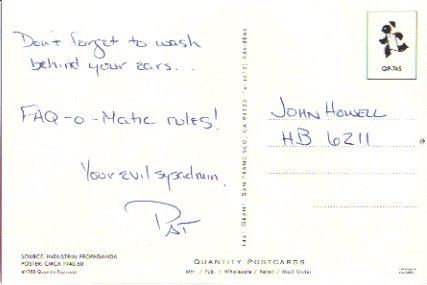 Don't forget to wash
behind your ears...
FAQ-o-Matic rules!
Your evil sysadmin,
PAT
SOURCE: INDUSTRIAL PROPAGANDA
POSTER, CIRCA 1940-50
QUANTITY POSTCARDS
Mfr. / Pub. / Wholesale / Retail / Mail Order
1441 GRANT SAN FRANCISCO, CA 94133
QP-765
JOHN HOWELL
HB 6211